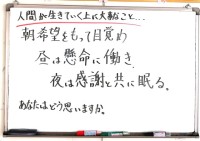 人間が生きていく上に大事なこと…
朝希望をもって目覚め
昼は懸命に働き、
夜は感謝と共に眠る。
あなたはどう思いますか。